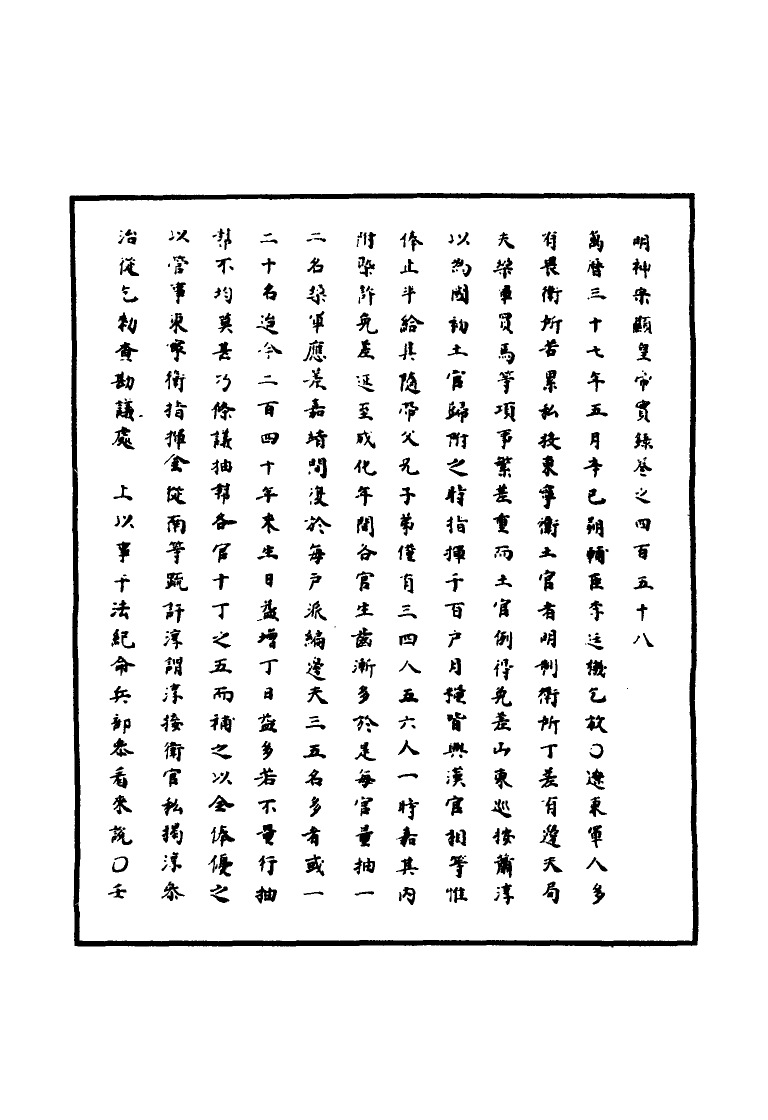 明神宗顯皇帝實錄卷之四百五十八
萬曆三十七年五月辛巳朔輔臣李廷機乞放○遼東軍人多
有畏衛所苦累私投東寧衛土官者明制衛所丁差有邊夫局
夫築軍買馬等項事繁差重而土官例得免差山東巡按蕭淳
以為國初土官歸附之時指揮千百戶月糧皆與漢官相等惟
俸止半給其隨帶父兄子弟僅有三四人五六人一時嘉其內
附槩許免差延至成化年間各官生齒漸多於是每官量抽一
二名築軍應差嘉靖間復於每戶派編邊夫三五名多者或一
二十名迨今二百四十年來生日益增丁日益多若不量行抽
幇不均莫甚乃條議抽幇各官十丁之五而補之以全俸優之
以管事東寧衛指揮金從南等疏訐淳謂淳接衛官私揭淳參
治從乞勑會勘議處　上以事干法紀命兵部叅看來說○壬